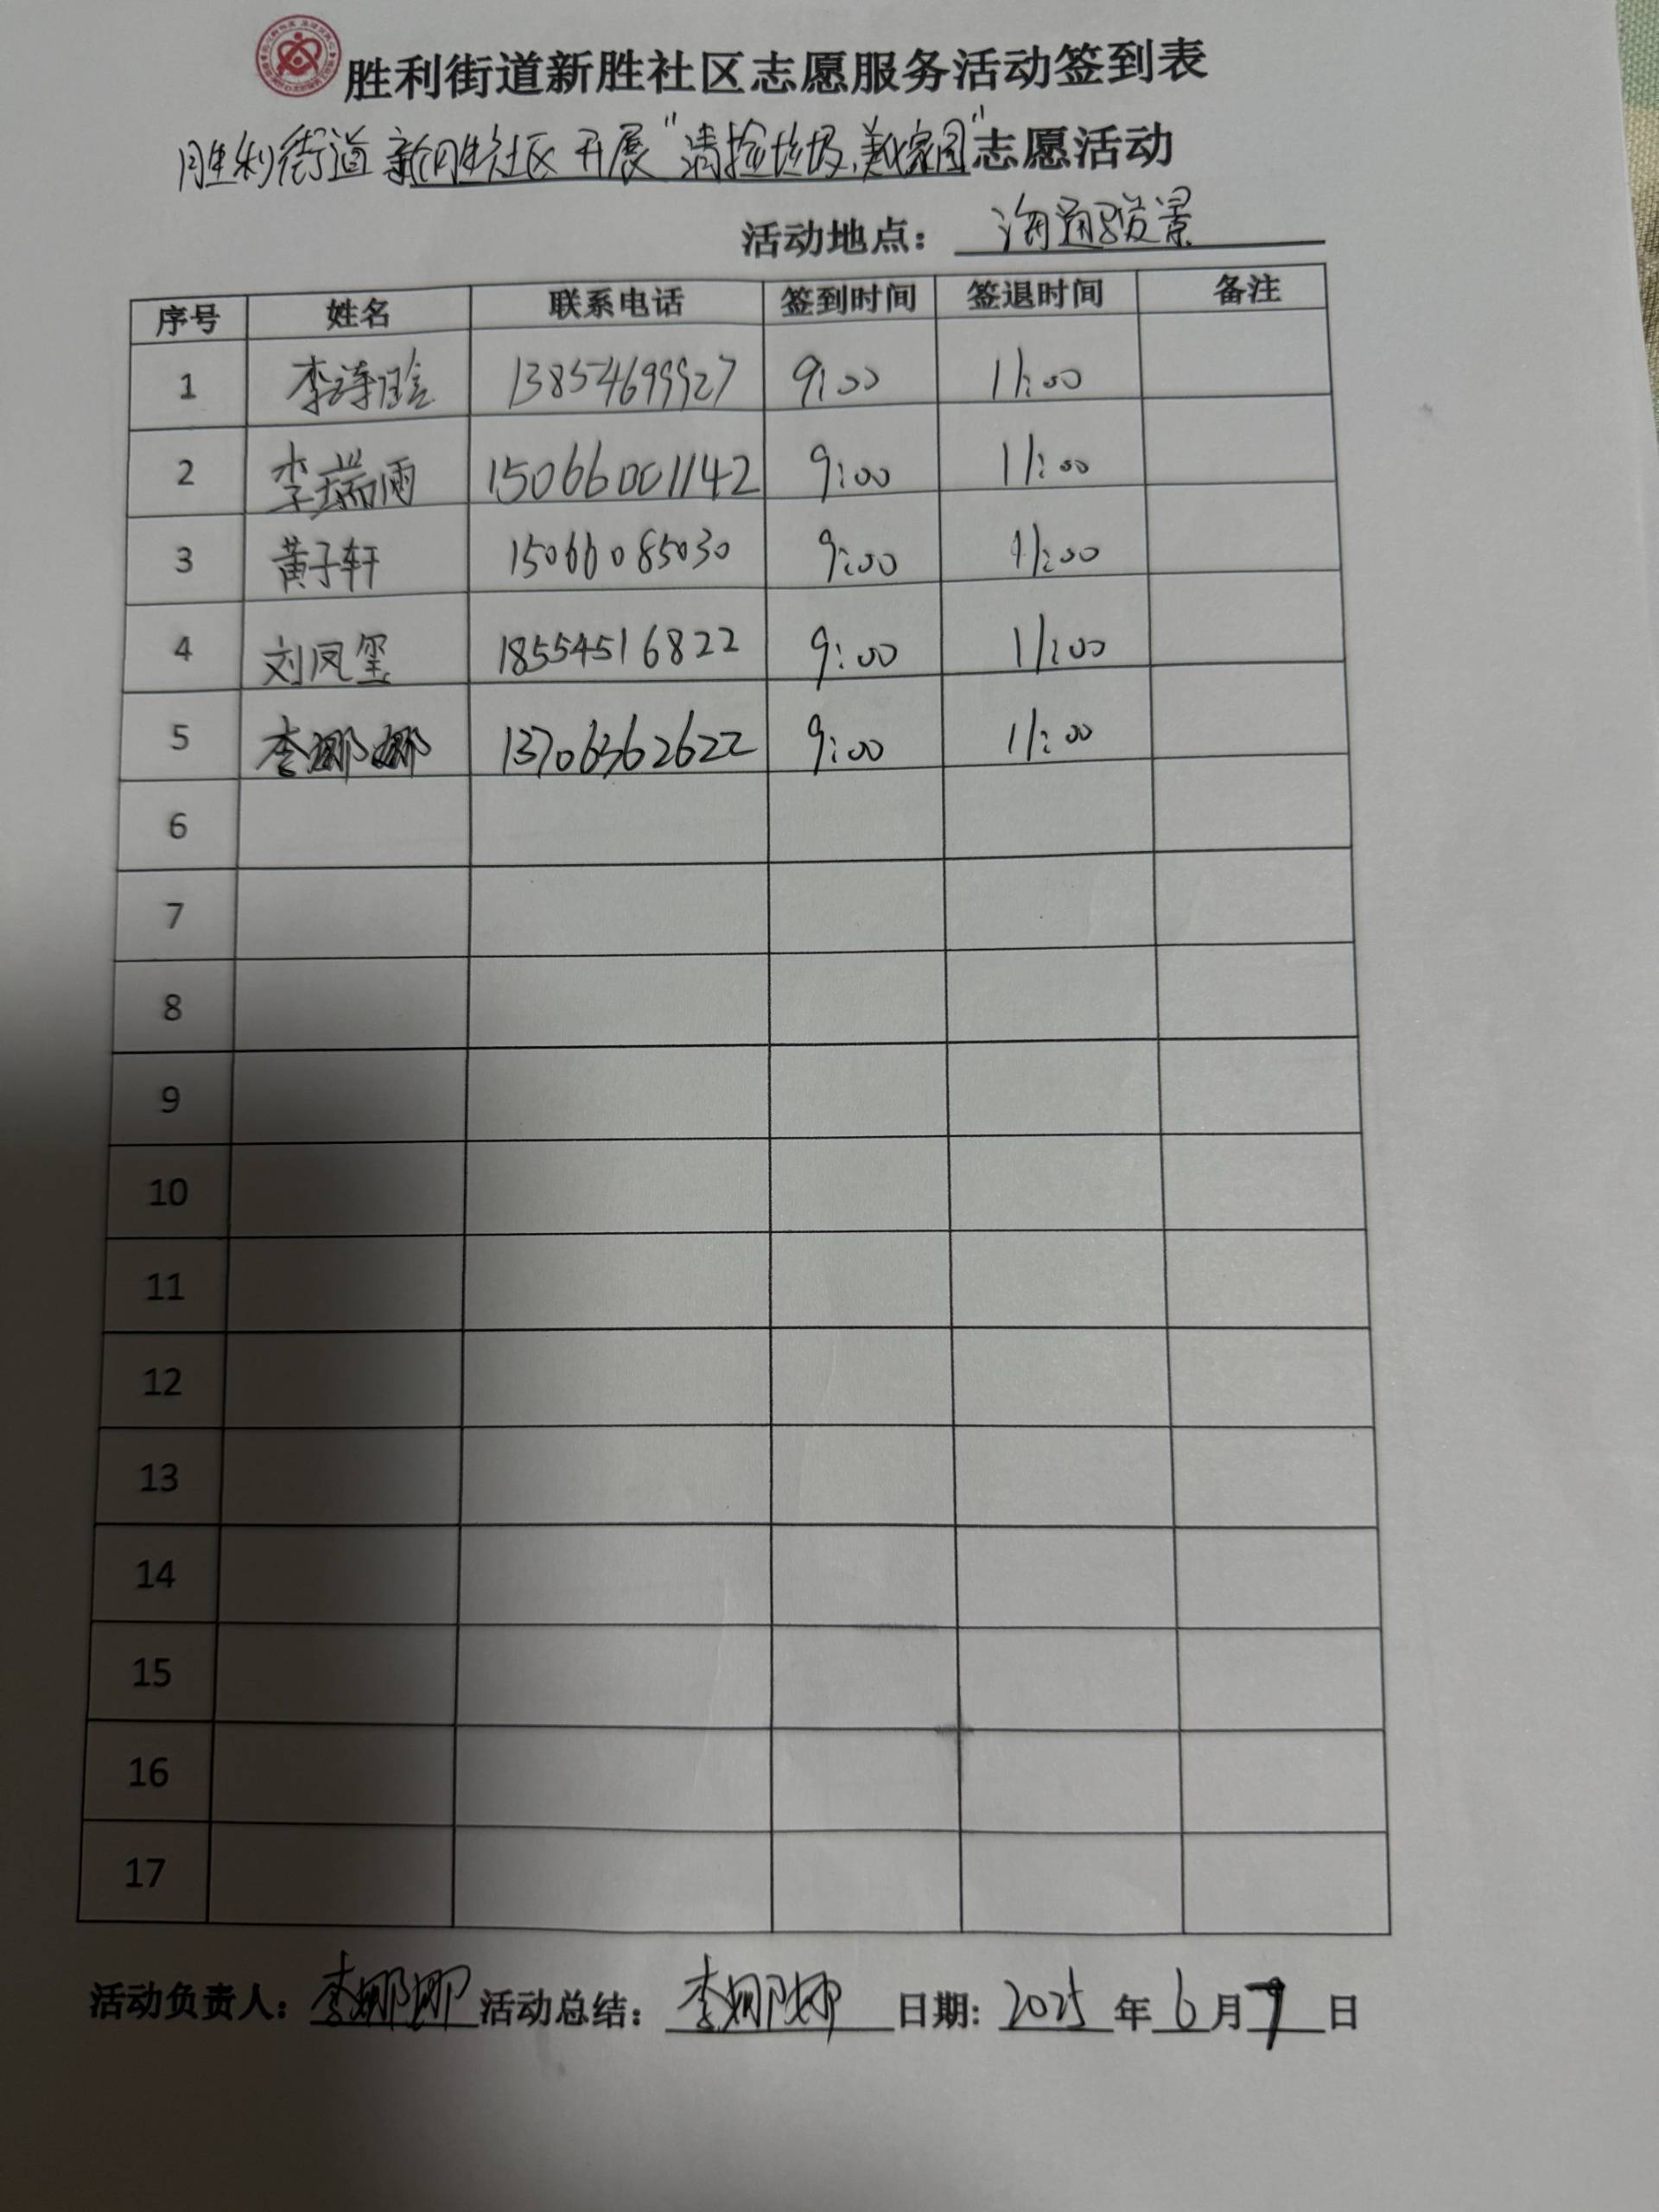 胜利街道新胜社区志愿服务活动签到表
胜利街道新胜社区开展"清捡垃圾,美化家园"志愿活动
活动地点: 海通骏景
序号 姓名 联系电话 签到时间 签退时间 备注
1 李 13854699927 9:00 11:00
2 李瑞雨 15066001142 9:00 11:00
3 黄子轩 15066085030 9:00 11:00
4 刘凤玺 18554516822 9:00 11:00
5 李娜娜 13706362622 9:00 11:00
6
7
8
9
10
11
12
13
14
15
16
17
活动负责人: 李娜娜 活动总结: 李娜娜 日期: 2025 年 6 月 7 日